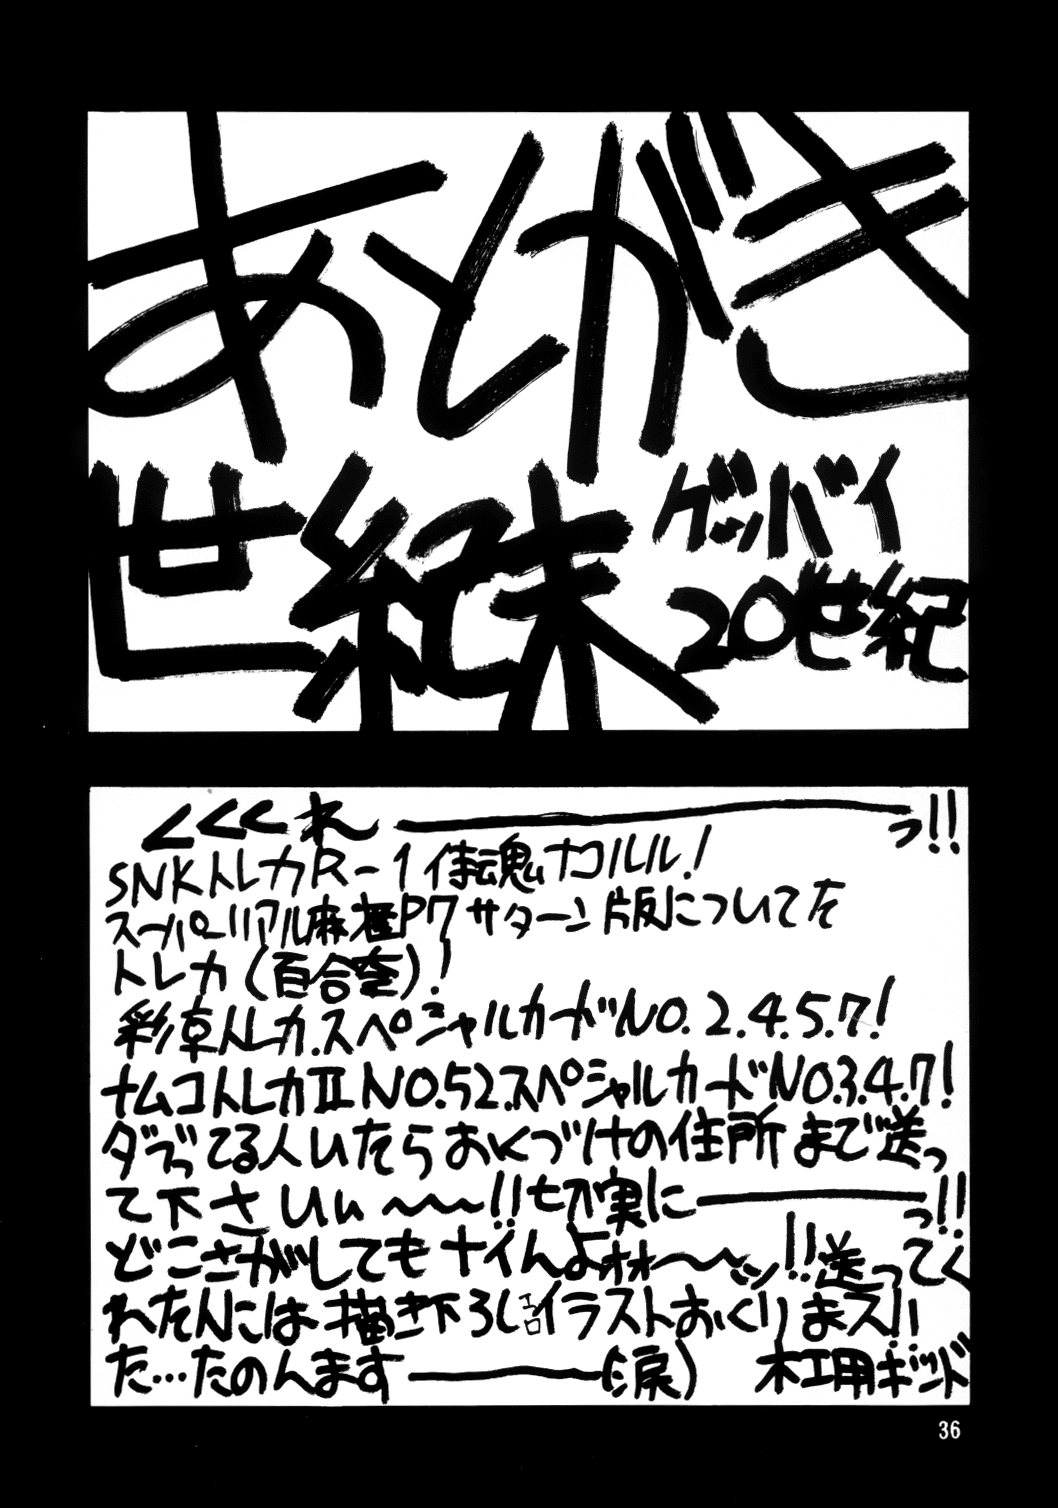 あとがき
世紀末
グッバイ
20世紀
くくくれ――――っ!!
SNKトレカR-1侍魂ナコルル!
スーパーリアル麻雀P7サターン版についてた
トレカ(百合奈)!
彩京トレカ.スペシャルカードNO.2.4.5.7!
ナムコトレカII NO.52.スペシャルカードNO3.4.7!
ダブってる人いたらおくづけの住所まで送っ
て下さいぃ〜〜〜!!切実に――――っ!!
どこさがしてもナイんよォォ〜〜ッ!!送ってく
れたんには描き下ろしエロイラストおくりまス!!
た…たのんます――――(涙) 木工用ボンド
36